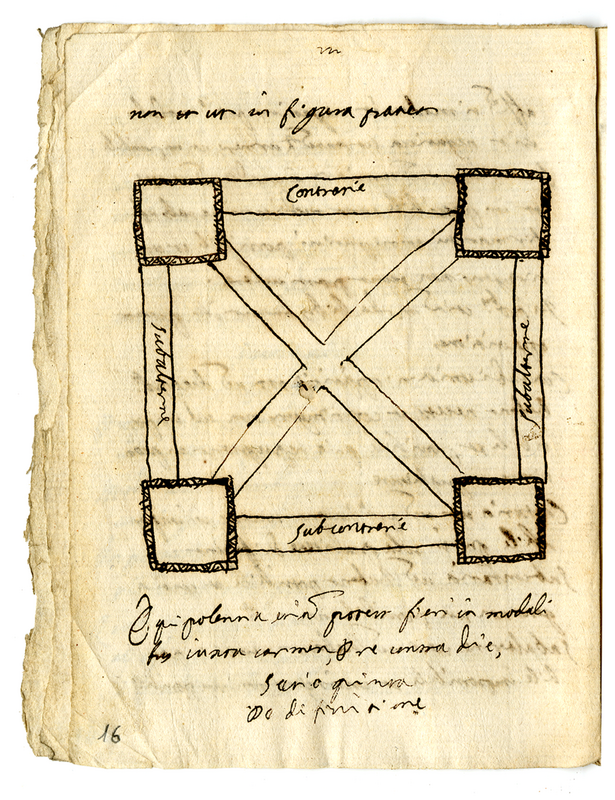 non et ut in figura patet
Contrarie
Subalterne
Subalterne
Subcontrarie
Equipolentia etiã potest fieri in modali
bus iuxta carmen, Pre contra die,
Satio quinta
De difinitione
16